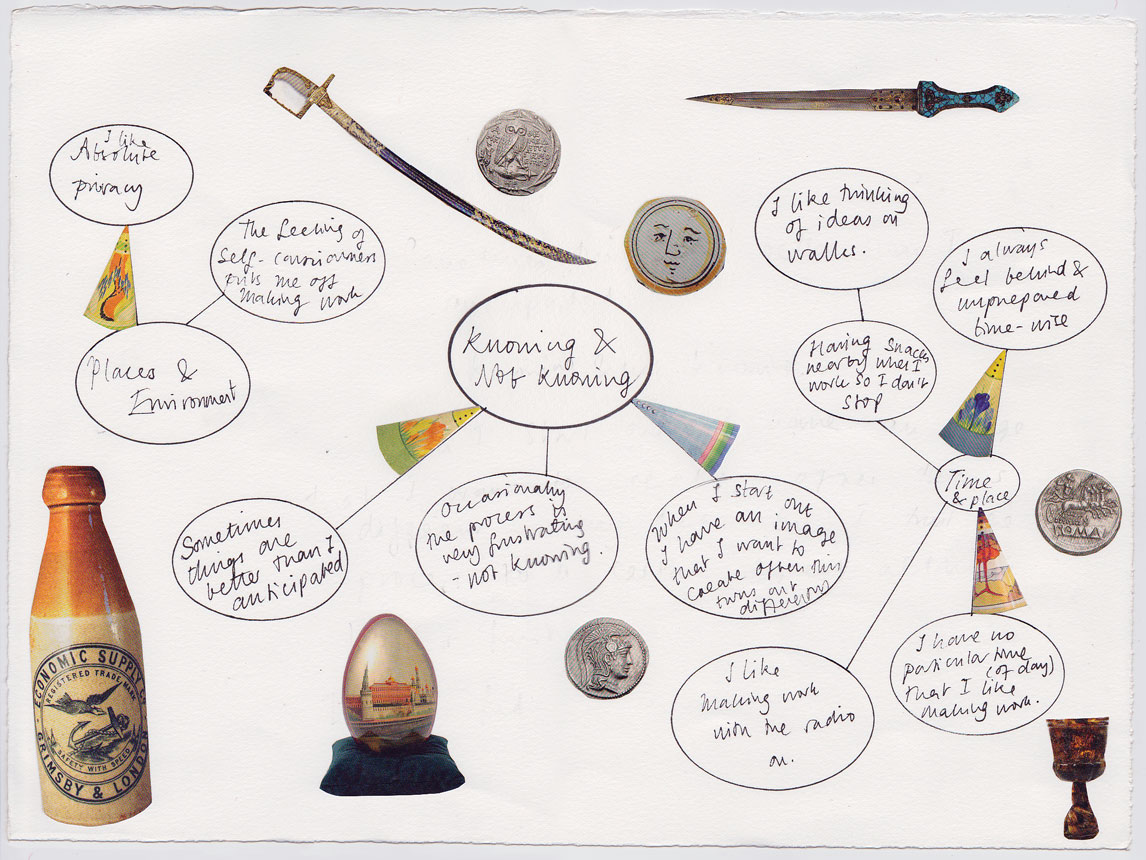 I like
Absolute
privacy
The feeling of
self-consciousness
puts me off
making work
Places &
Environment
Knowing &
Not Knowing
Sometimes
things are
better than I
anticipated
Occasionally
the process is
very frustrating
- not knowing.
When I start out
I have an image
that I want to
create often this
turns out
different
I like thinking
of ideas on
walks.
Having snacks
nearby when I
work so I don't
stop
I always
feel behind &
unprepared
time-wise
Time
& place
I like
making work
with the radio
on.
I have no
paticular time
(of day)
that I like
making work.
ECONOMIC SUPPLY Co
REGISTERED TRADE MARK
SAFETY WITH SPEED
GRIMSBY & LONDON
ROMA